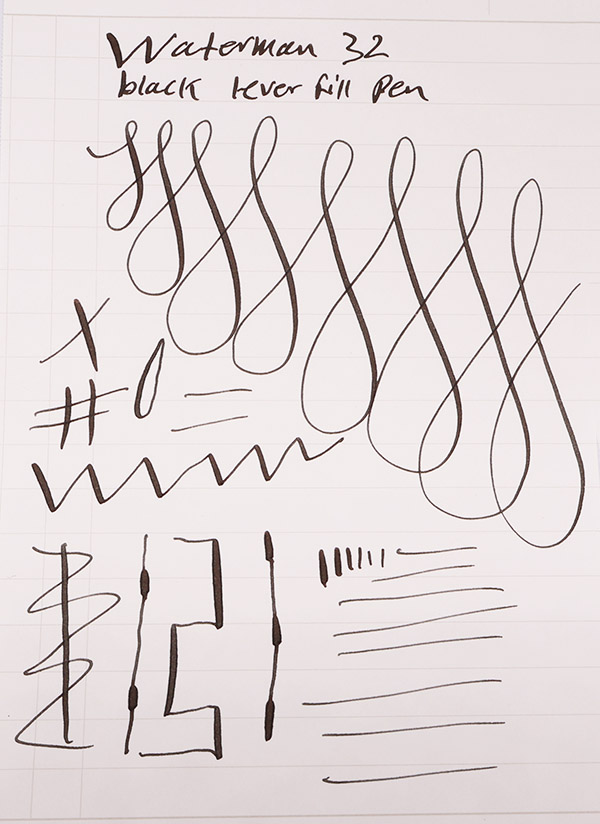 Waterman 32
black lever fill pen